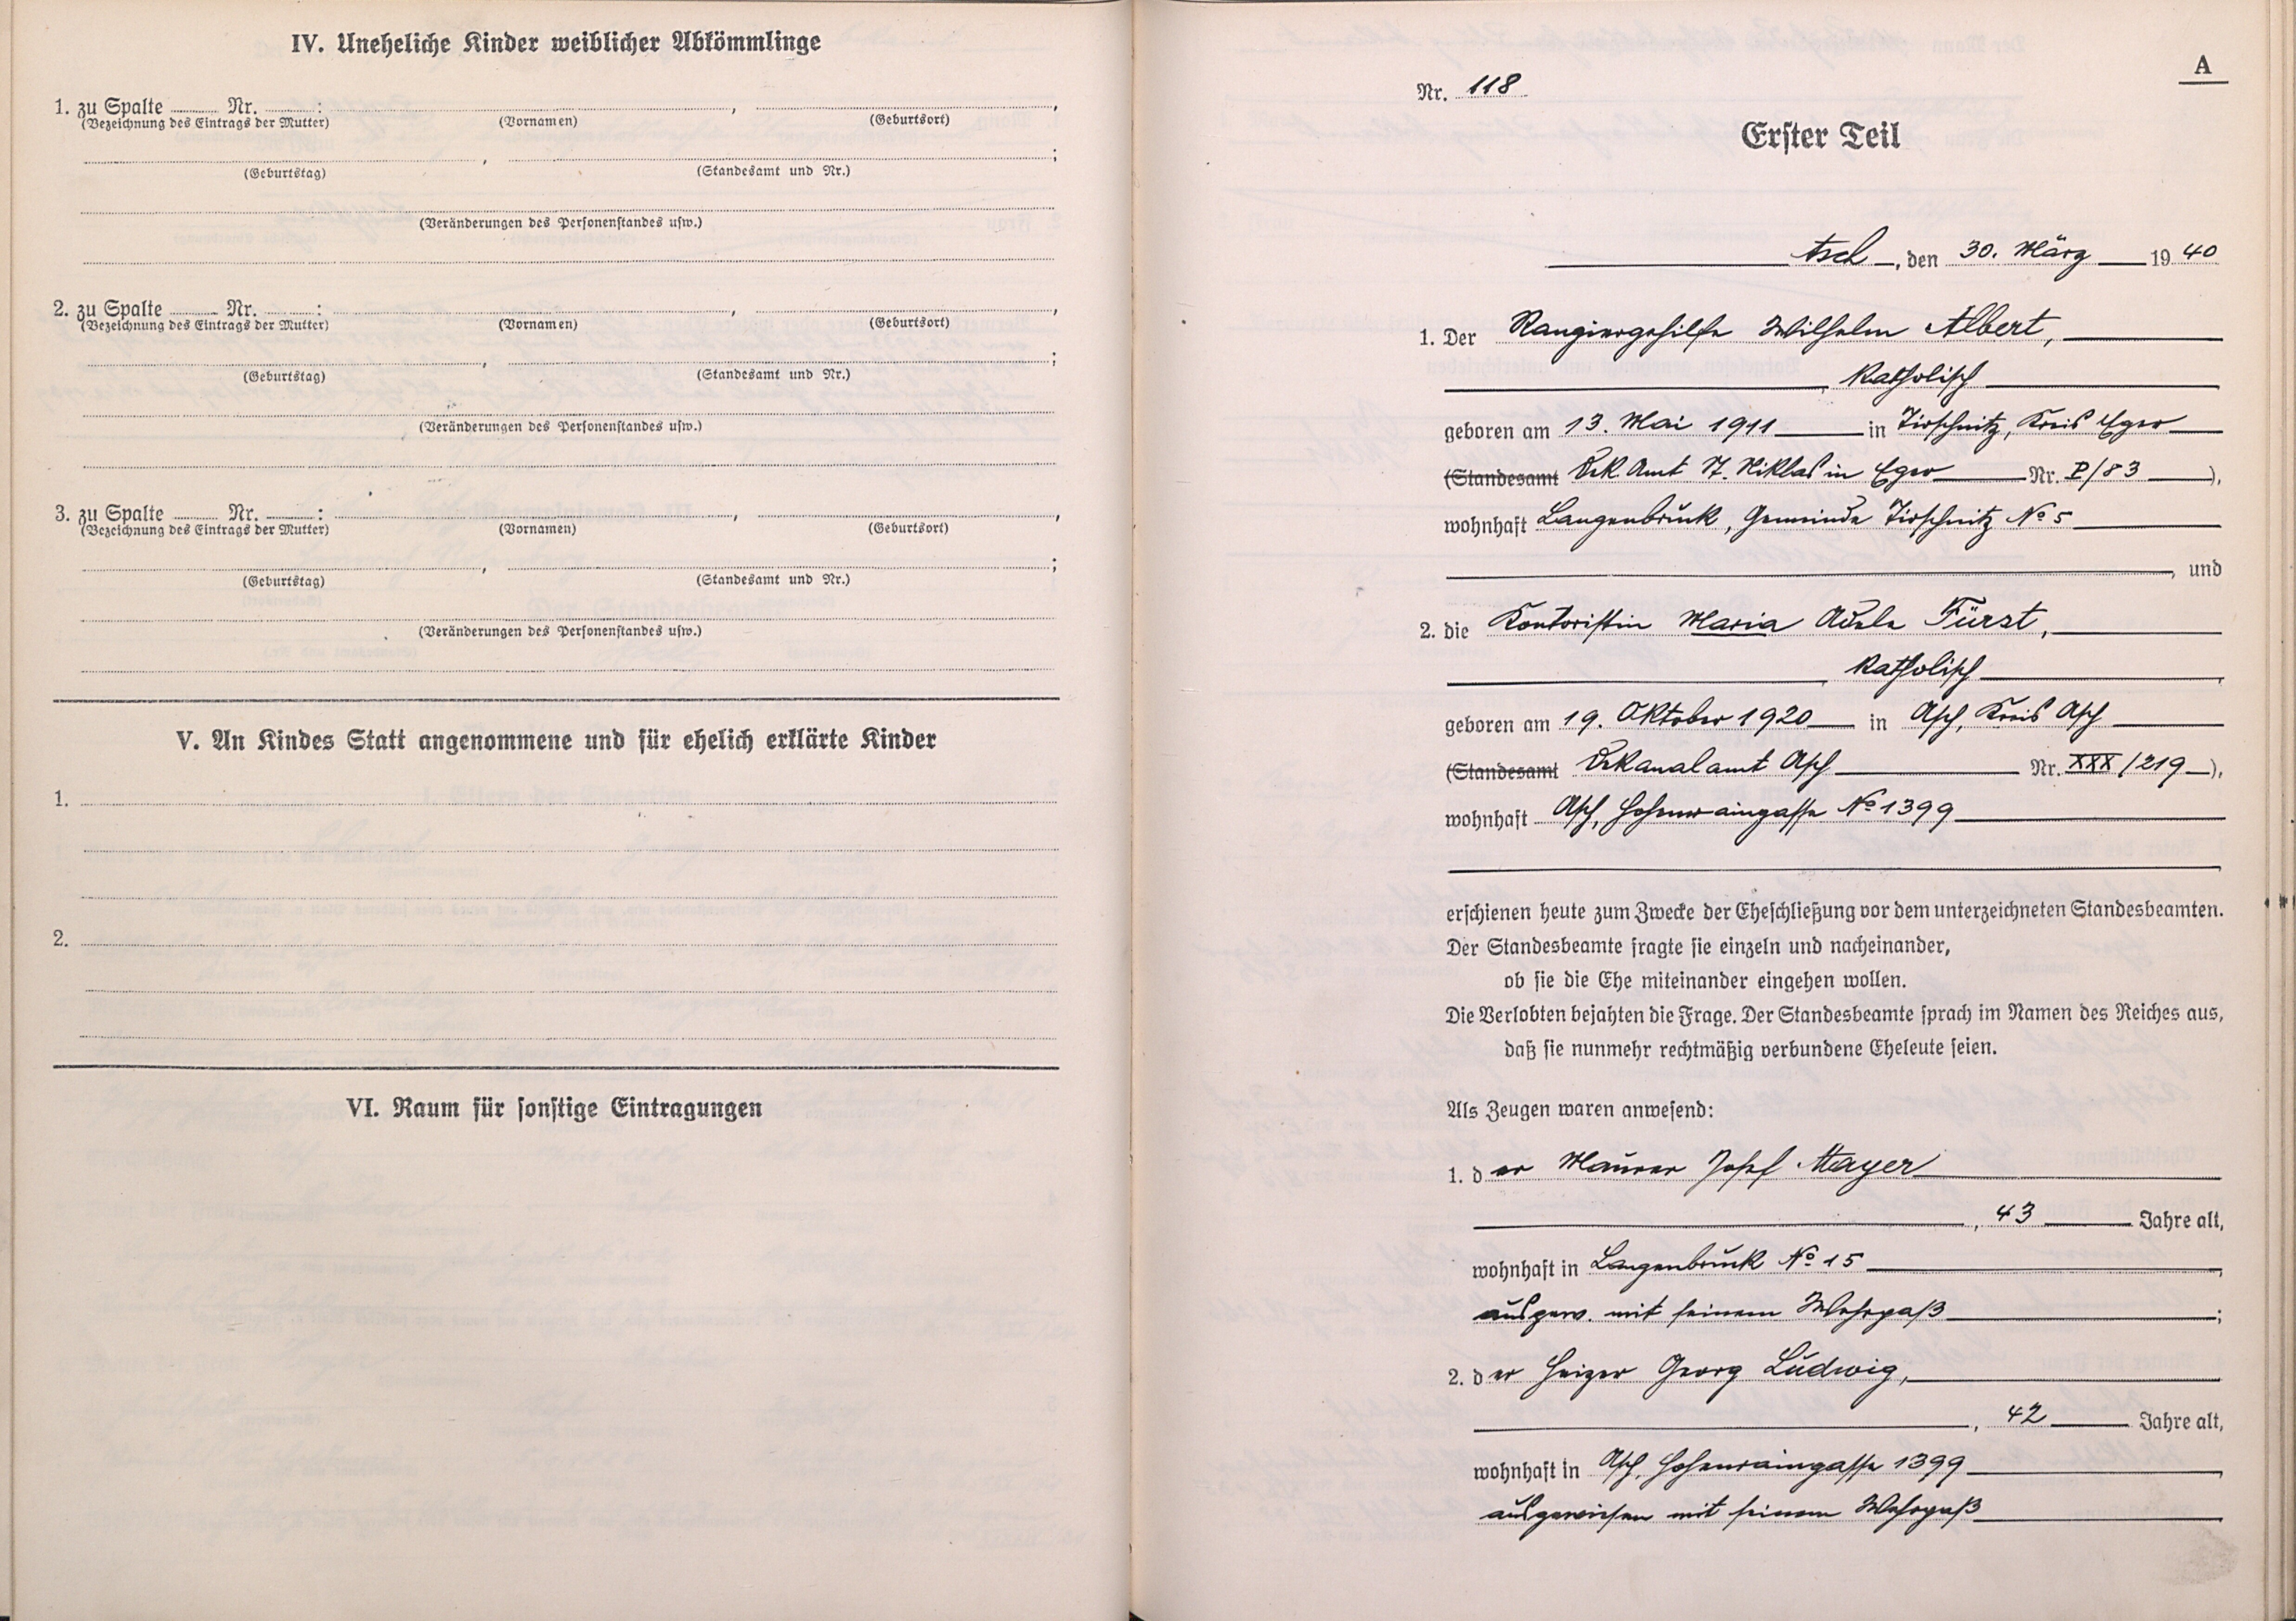 IV. Uneheliche Kinder weiblicher Abkömmlinge
1. zu Spalte ........ Nr. ........ : ........ , ........ ,
(Bezeichnung des Eintrags der Mutter) (Vornamen) (Geburtsort)
........ , ........ ;
(Geburtstag) (Standesamt und Nr.)
(Veränderungen des Personenstandes usw.)
2. zu Spalte ........ Nr. ........ : ........ , ........ ,
(Bezeichnung des Eintrags der Mutter) (Vornamen) (Geburtsort)
........ , ........ ;
(Geburtstag) (Standesamt und Nr.)
(Veränderungen des Personenstandes usw.)
3. zu Spalte ........ Nr. ........ : ........ , ........ ,
(Bezeichnung des Eintrags der Mutter) (Vornamen) (Geburtsort)
........ , ........ ;
(Geburtstag) (Standesamt und Nr.)
(Veränderungen des Personenstandes usw.)
V. An Kindes Statt angenommene und für ehelich erklärte Kinder
1.
2.
VI. Raum für sonstige Eintragungen
A
Nr. 118
Erster Teil
Asch, den 30. März 1940
1. Der Rangiergehilfe Wilhelm Albert,
, katholisch
geboren am 13. Mai 1911 in Tirschnitz, Kreis Eger
(Standesamt Dek. Amt St. Niklas in Eger Nr. P/83 ),
wohnhaft Langenbruck, Gemeinde Tirschnitz No 5
, und
2. die Kontoristin Maria Adele Fürst,
, katholisch ,
geboren am 19. Oktober 1920 in Asch, Kreis Asch
(Standesamt Dekanalamt Asch Nr. XXX/219 ),
wohnhaft Asch, Hohenraingasse No 1399
erschienen heute zum Zwecke der Eheschließung vor dem unterzeichneten Standesbeamten.
Der Standesbeamte fragte sie einzeln und nacheinander,
ob sie die Ehe miteinander eingehen wollen.
Die Verlobten bejahten die Frage. Der Standesbeamte sprach im Namen des Reiches aus,
daß sie nunmehr rechtmäßig verbundene Eheleute seien.
Als Zeugen waren anwesend:
1. der Maurer Josef Mayer
, 43 Jahre alt,
wohnhaft in Langenbruck No 15 ,
ausgew. mit seinem Wehrpaß ;
2. der Heizer Georg Ludwig,
, 42 Jahre alt,
wohnhaft in Asch, Hohenraingasse 1399 ,
ausgewiesen mit seinem Wehrpaß